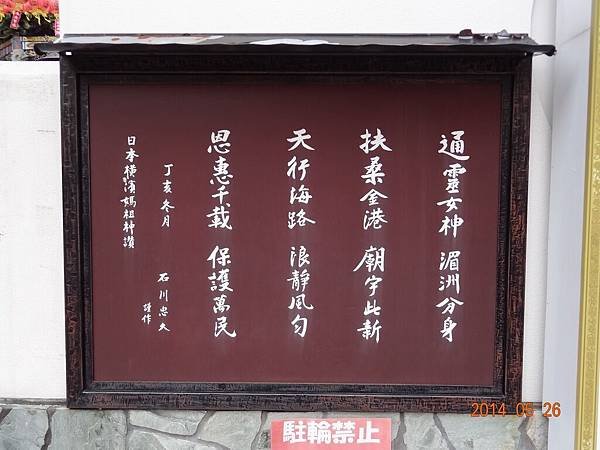 通靈女神 湄洲分身
扶桑金港 廟宇此新
天行海路 浪靜風勻
恩惠千載 保護萬民
丁亥冬月 石川忠久 謹作
日本橫濱媽祖神讚
駐輪禁止
2014 05 26